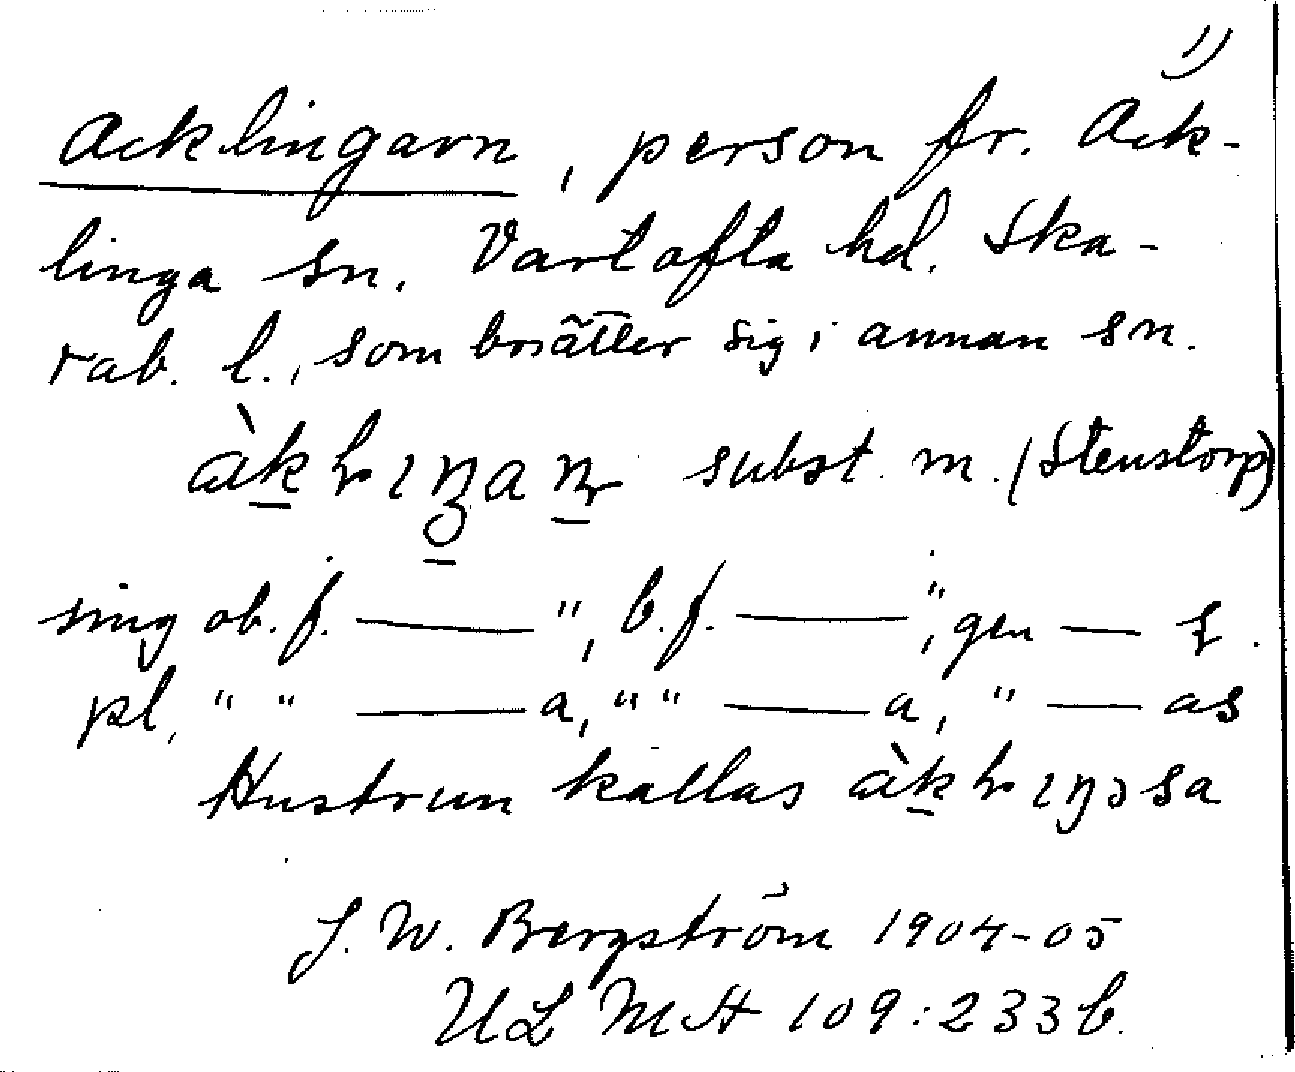 1)
Acklingarn, person fr. Ack-
linga sn. Vartofta hd. Ska-
rab. l., som bosätter sig i annan sn.
subst. m. (Stenstorp)
sing ob. f. — ", b. f. — ", gen — s.
pl. " " — a, " " — a, " — as
Hustrun kallas
J. W. Bergström 1904-05
ULMA 109:233 b.